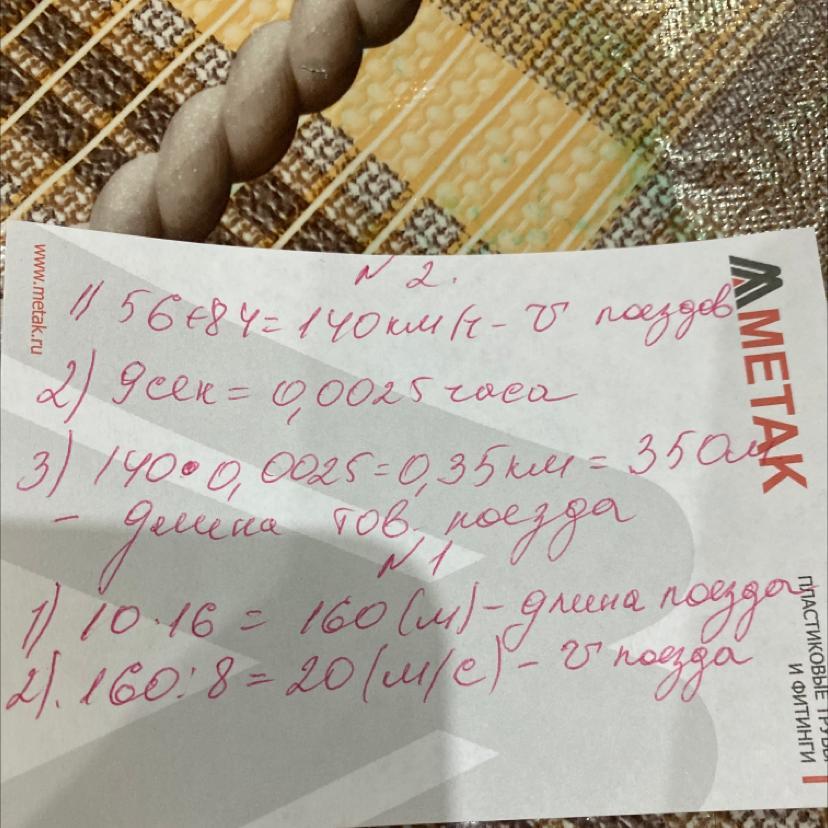 www.metak.ru
МЕТАК
ПЛАСТИКОВЫЕ ТРУБЫ
И ФИТИНГИ
№ 2.
1) 56+84=140км/ч - v поездов
2) 9сек = 0,0025 часа
3) 140•0,0025=0,35км = 350м
- длина тов. поезда
№1
1) 10·16 = 160(м) - длина поезда
2). 160:8=20(м/с) - v поезда